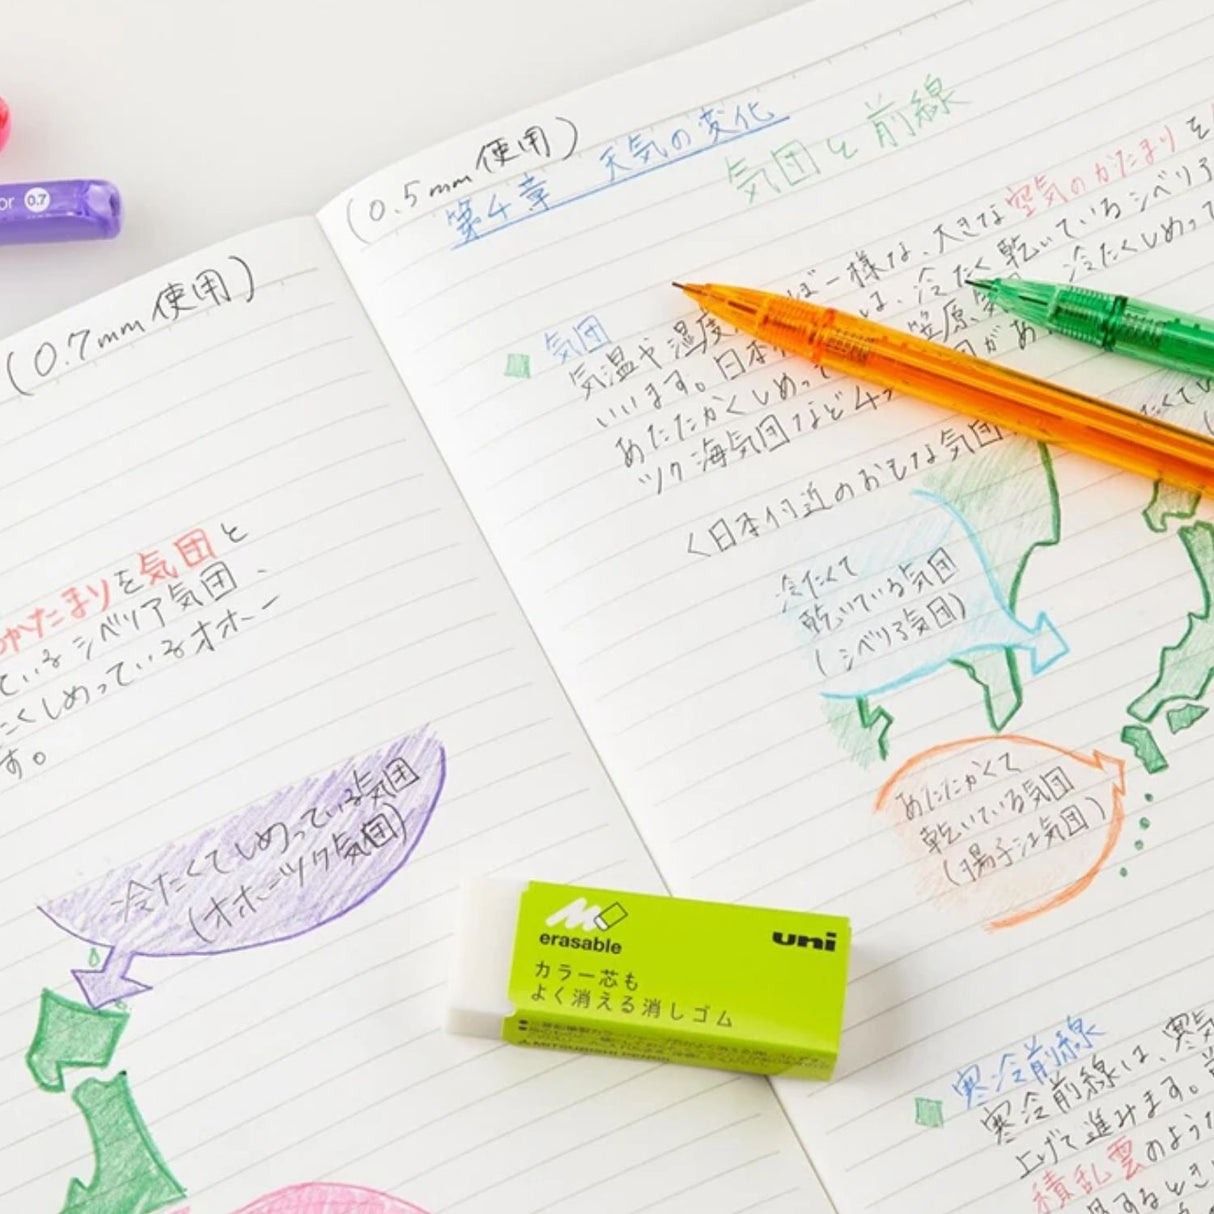 or 0.7
(0.7mm 使用)
かたまりを気団と
ているシベリア気団、
たくしめっているオホー
す。
冷たくてしめっている気団
(オホーツク気団)
(0.5mm 使用)
第4章 天気の変化
気団と前線
気団
ば一様な、大きな空気のかたまりを
気温や湿度
は、冷たく乾いているシベリア
います。日本
笠原気
冷たくしめって
あたたかくしめって
団があ
ツク海気団など4つ
<日本付近のおもな気団
冷たくて
乾いている気団
(シベリア気団)
あたたかくて
乾いている気団
(揚子江気団)
erasable
uni
カラー芯も
よく消える消しゴム
MITSUBISHI PENCIL
寒冷前線
寒冷前線は、寒気
上げて進みます。
積乱雲のような